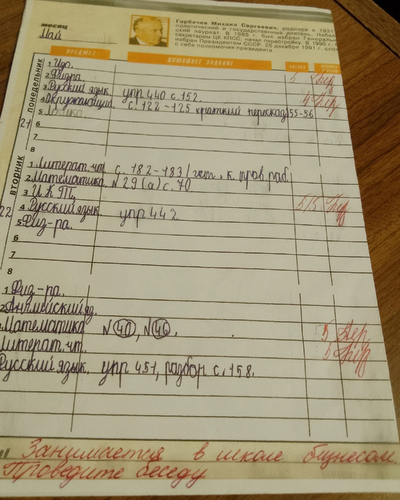 месяц
Май
Горбачев Михаил Сергеевич, родился в 1931
политический и государственный деятель, Нобел
ский лауреат. В 1985 г. был избран Генерал
секретарем ЦК КПСС, начал перестройку. В 1990 г.
избран Президентом СССР. 25 декабря 1991 г.
с себя полномочия президента
ПРЕДМЕТ ДОМАШНЕЕ ЗАДАНИЕ
ПОНЕДЕЛЬНИК
21
1
2 Физра.
3 Русский язык упр 440 с. 152.
4 Окружающий. с. 122-125 краткий пересказ 55-56
5
6
7
8
ВТОРНИК
22
1 Литерат. чт. с. 182-183/чит, к. пров раб.
2 Математика. №29(а) с. 70
3 И К Т
4 Русский язык. упр 442
5 Физ-ра.
6
7
8
1 Физ-ра.
2 Английский яз.
Математика №40, №46. 5
Литерат. чт. 5
Русский язык. упр 451, разбор с. 158.
Занимается в школе бизнесом
Проведите беседу